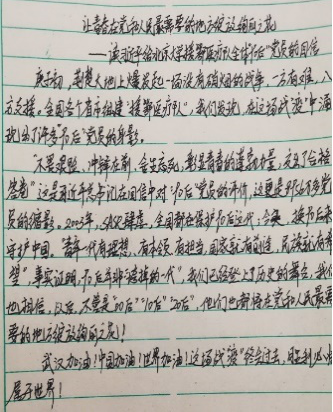 让青春在党和人民最需要的地方绽放绚丽之花
——读习近平给北京大学援鄂医疗队全体“90后”党员的回信
庚子初，荆楚大地上爆发起一场没有硝烟的战争，一方有难，八
方支援。全国各个省市组建“援鄂医疗队”，我们发现，在这场战“疫”中涌
现出了许多“90后”党员的身影。
“不畏艰险、冲锋在前、舍生忘死，彰显青春的蓬勃力量，交出了合格
答卷”这是习近平总书记在回信中对“90后”党员的评价，这更是
员的缩影。2003年，SARS肆虐，全国都在保护90后这代，今天，换90后来
守护中国。“青年一代有理想、有本领、有担当，国家就有前途，民族就有希
望”事实证明，90后并非“垮掉的一代”，我们已经登上了历史的舞台，我们
也相信，以后，不管是“00后”“10后”“20后”，他们也都将在党和人民最需
要的地方绽放绚丽之花！
武汉加油！中国加油！世界加油！这场战“疫”终会过去，胜利必
属于世界！